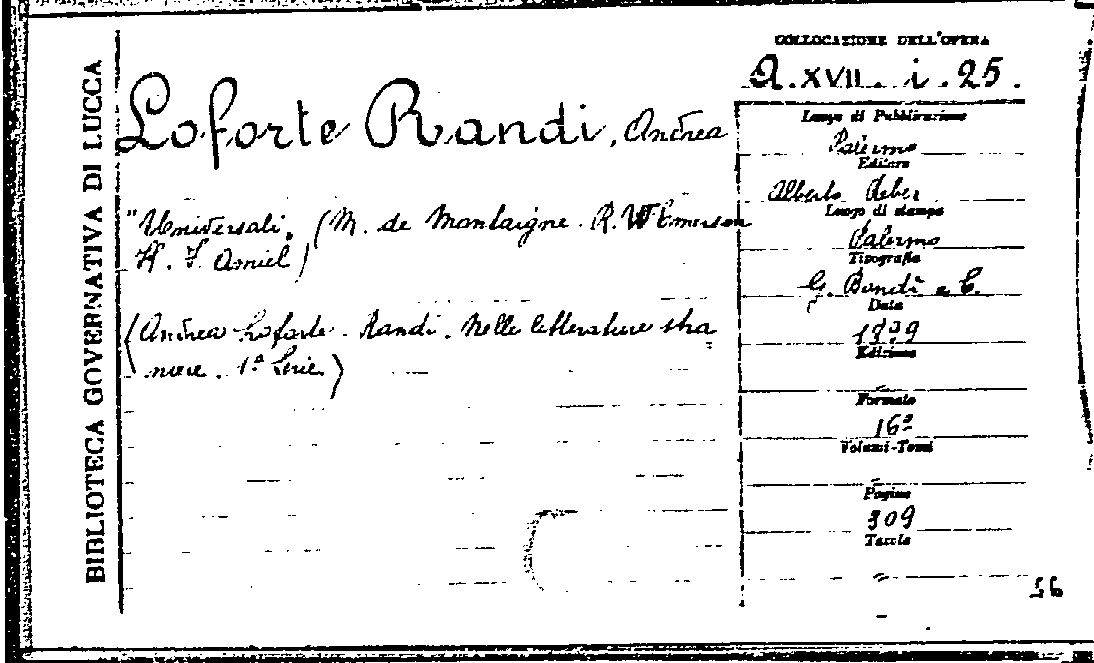 BIBLIOTECA GOVERNATIVA DI LUCCA
COLLOCAZIONE DELL'OPERA
Q. XVII. i. 25.
Loforte Randi, Andrea
"Universali. (M. de Montaigne. R. W Emerson
H. F. Amiel)
(Andrea Loforte-Randi. Nelle letterature stra
niere. 1ª Serie)
Luogo di Pubblicazione
Palermo
Editore
Alberto Reber
Luogo di stampa
Palermo
Tipografia
G. Bondì e C.
Data
Edizione
Formato
16º
Volumi-Tomi
Pagine
309
Tavole